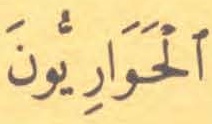 ٱلْحَوَارِيُّونَ